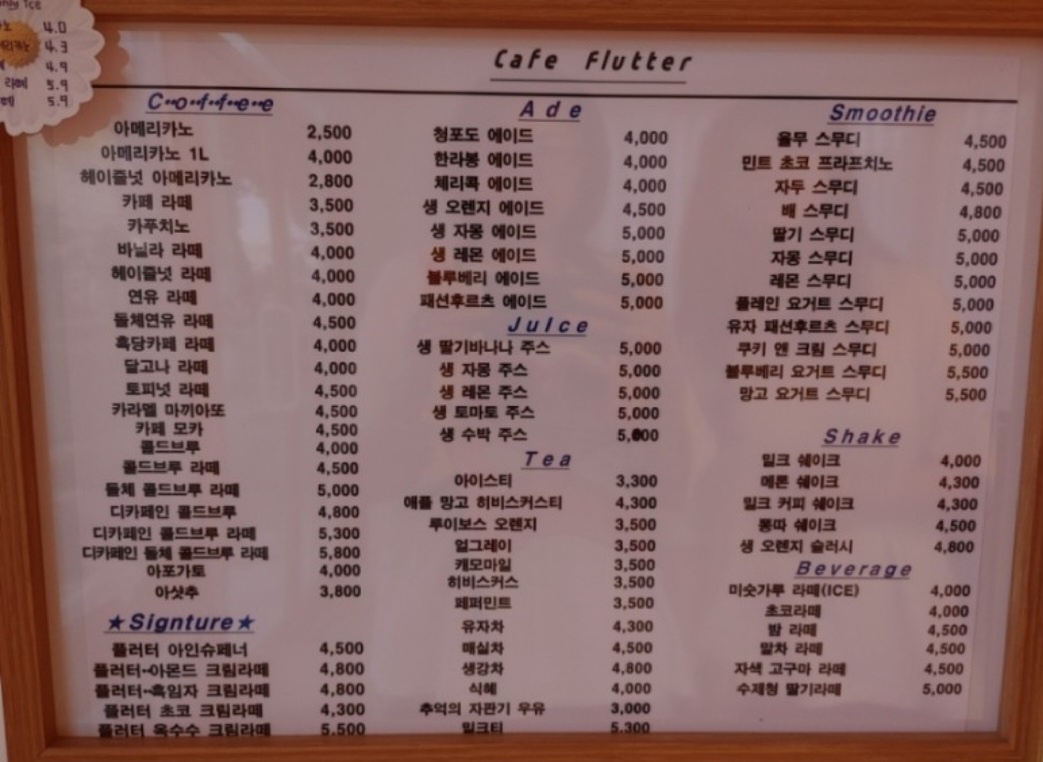 4.0
4.3
4.9
라떼 5.9
5.9
Cafe Flutter
Coffee
아메리카노 2,500
아메리카노 1L 4,000
헤이즐넛 아메리카노 2,800
카페 라떼 3,500
카푸치노 3,500
바닐라 라떼 4,000
헤이즐넛 라떼 4,000
연유 라떼 4,000
돌체연유 라떼 4,500
흑당카페 라떼 4,000
달고나 라떼 4,000
토피넛 라떼 4,500
카라멜 마끼아또 4,500
카페 모카 4,500
콜드브루 4,000
콜드브루 라떼 4,500
돌체 콜드브루 라떼 5,000
디카페인 콜드브루 4,800
디카페인 콜드브루 라떼 5,300
디카페인 돌체 콜드브루 라떼 5,800
아포가토 4,000
아샷추 3,800
★Signture★
플러터 아인슈페너 4,500
플러터--아몬드 크림라떼 4,800
플러터--흑임자 크림라떼 4,800
플러터 초코 크림라떼 4,300
플러터 옥수수 크림라떼 5,500
Ade
청포도 에이드 4,000
한라봉 에이드 4,000
체리콕 에이드 4,000
생 오렌지 에이드 4,500
생 자몽 에이드 5,000
생 레몬 에이드 5,000
블루베리 에이드 5,000
패션후르츠 에이드 5,000
Juice
생 딸기바나나 주스 5,000
생 자몽 주스 5,000
생 레몬 주스 5,000
생 토마토 주스 5,000
생 수박 주스 5,000
Tea
아이스티 3,300
애플 망고 히비스커스티 4,300
루이보스 오렌지 3,500
얼그레이 3,500
캐모마일 3,500
히비스커스 3,500
페퍼민트 3,500
유자차 4,300
매실차 4,500
생강차 4,800
식혜 4,000
추억의 자판기 우유 3,000
밀크티 5,300
Smoothie
율무 스무디 4,500
민트 초코 프라프치노 4,500
자두 스무디 4,500
배 스무디 4,800
딸기 스무디 5,000
자몽 스무디 5,000
레몬 스무디 5,000
플레인 요거트 스무디 5,000
유자 패션후르츠 스무디 5,000
쿠키 앤 크림 스무디 5,000
블루베리 요거트 스무디 5,500
망고 요거트 스무디 5,500
Shake
밀크 쉐이크 4,000
메론 쉐이크 4,300
밀크 커피 쉐이크 4,300
퐁따 쉐이크 4,500
생 오렌지 슬러시 4,800
Beverage
미숫가루 라떼(ICE) 4,000
초코라떼 4,000
밤 라떼 4,500
말차 라떼 4,500
자색 고구마 라떼 4,500
수제청 딸기라떼 5,000